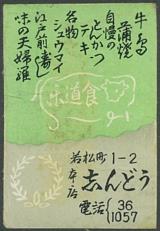 牛鳥
蒲燒
自慢の
とんかつ
テキ
名物
シュウマイ
江戸前寿し
味の天婦羅
食道楽
若松町1-2
本店
志んどう
電話{36
1057